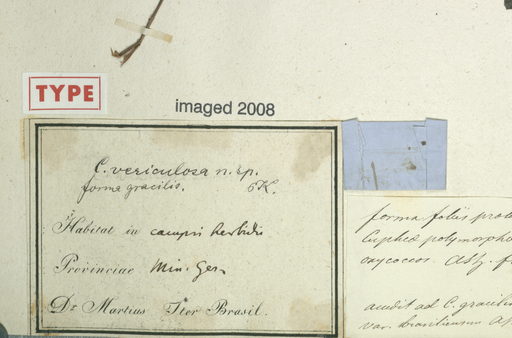 TYPE
imaged 2008
C. vesiculosa n. sp.
forma gracilis.
Habitat in campis herbidis
Provinciae Min. Ger.
Dr Martius Iter Brasil.
forma foliis
Cupheae polymorpho
oxycoccos.
accedit ad C. gracilis
var. brasiliensem